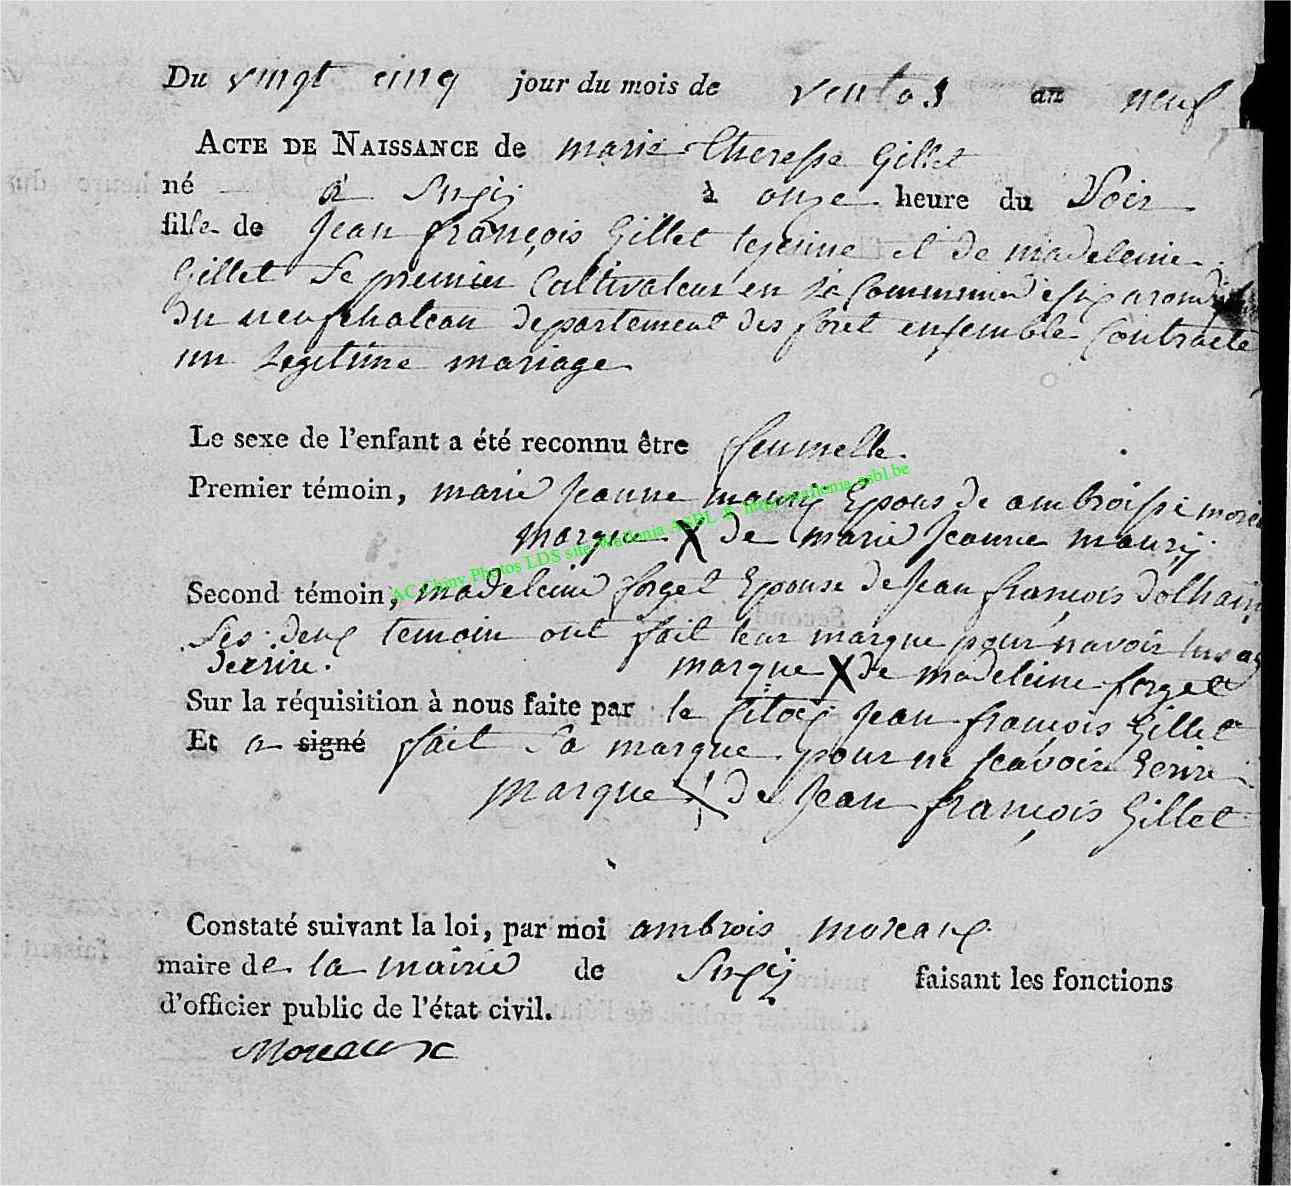 Du vingt cinq jour du mois de ventos an neuf
ACTE DE NAISSANCE de marie Theresse Gillet
né à à onze heure du Soir
fille de Jean françois Gillet lejeune et de madeleine
Gillet Le premier Cultivateur en la Commune
du neufchateau departement des foret ensemble Contracté
un Legitime mariage
Le sexe de l'enfant a été reconnu être femmelle
Premier témoin, marie Jeanne maury Epous de ambroisse
marque X de marie Jeanne maury
Second témoin, madeleine forget Epouse de Jean françois
Les deux temoin ont fait leur marque pour navoir
decrire. marque X de madeleine forget
Sur la réquisition à nous faite par le Citoy Jean françois Gillet
Et a signé fait Sa marque pour ne scavoir Ecrire
marque de Jean françois Gillet
Constaté suivant la loi, par moi ambrois moreaux
maire de la mairie de faisant les fonctions
d'officier public de l'état civil.
Moreaux
AC Chiny Photos LDS site Wallonia ASBL